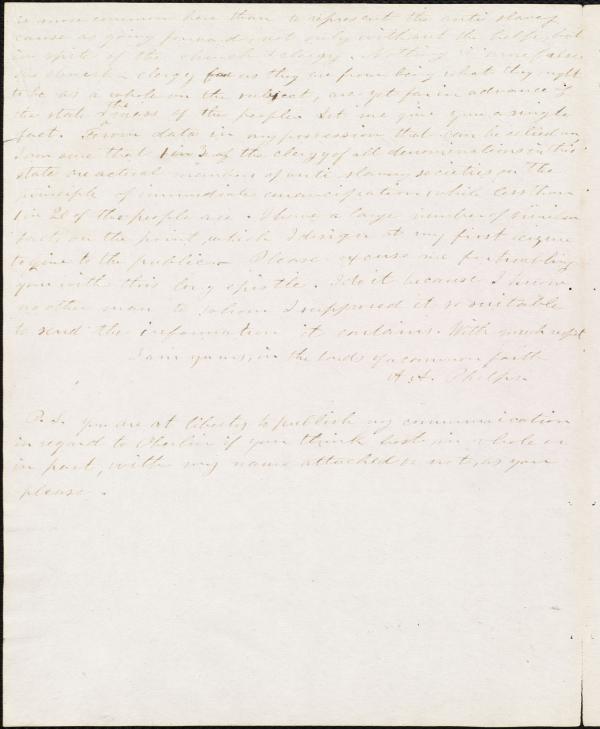 is more common here than to represent the anti slavery
cause as going forward, not only without the help, but
in spite of the church & clergy. Nothing is more false.
The church & clergy far as they are from being what they ought
to be as a whole on the subject, are yet far in advance of
the state of the mass of the people. Let me give you a single
fact. From data in my possession that can be relied on,
I am sure that 1 in 3 of the clergy of all denominations in this
state are actual members of anti slavery societies on the
principle of immediate emancipation, while less than
1 in 20 of the people are. I have a large number of similar
facts on the point, which I design at my first leisure
to give to the public. Please excuse me for troubling
you with this long epistle. I do it because I know
no other man to whom I supposed it so suitable
to send the information it contains. With much respect
I am yours, in the bonds of a common faith
A. A. Phelps.
P.S. you are at liberty to publish my communication
in regard to Oberlin if you think best, in whole or
in part, with my name attached or not, as you
please.